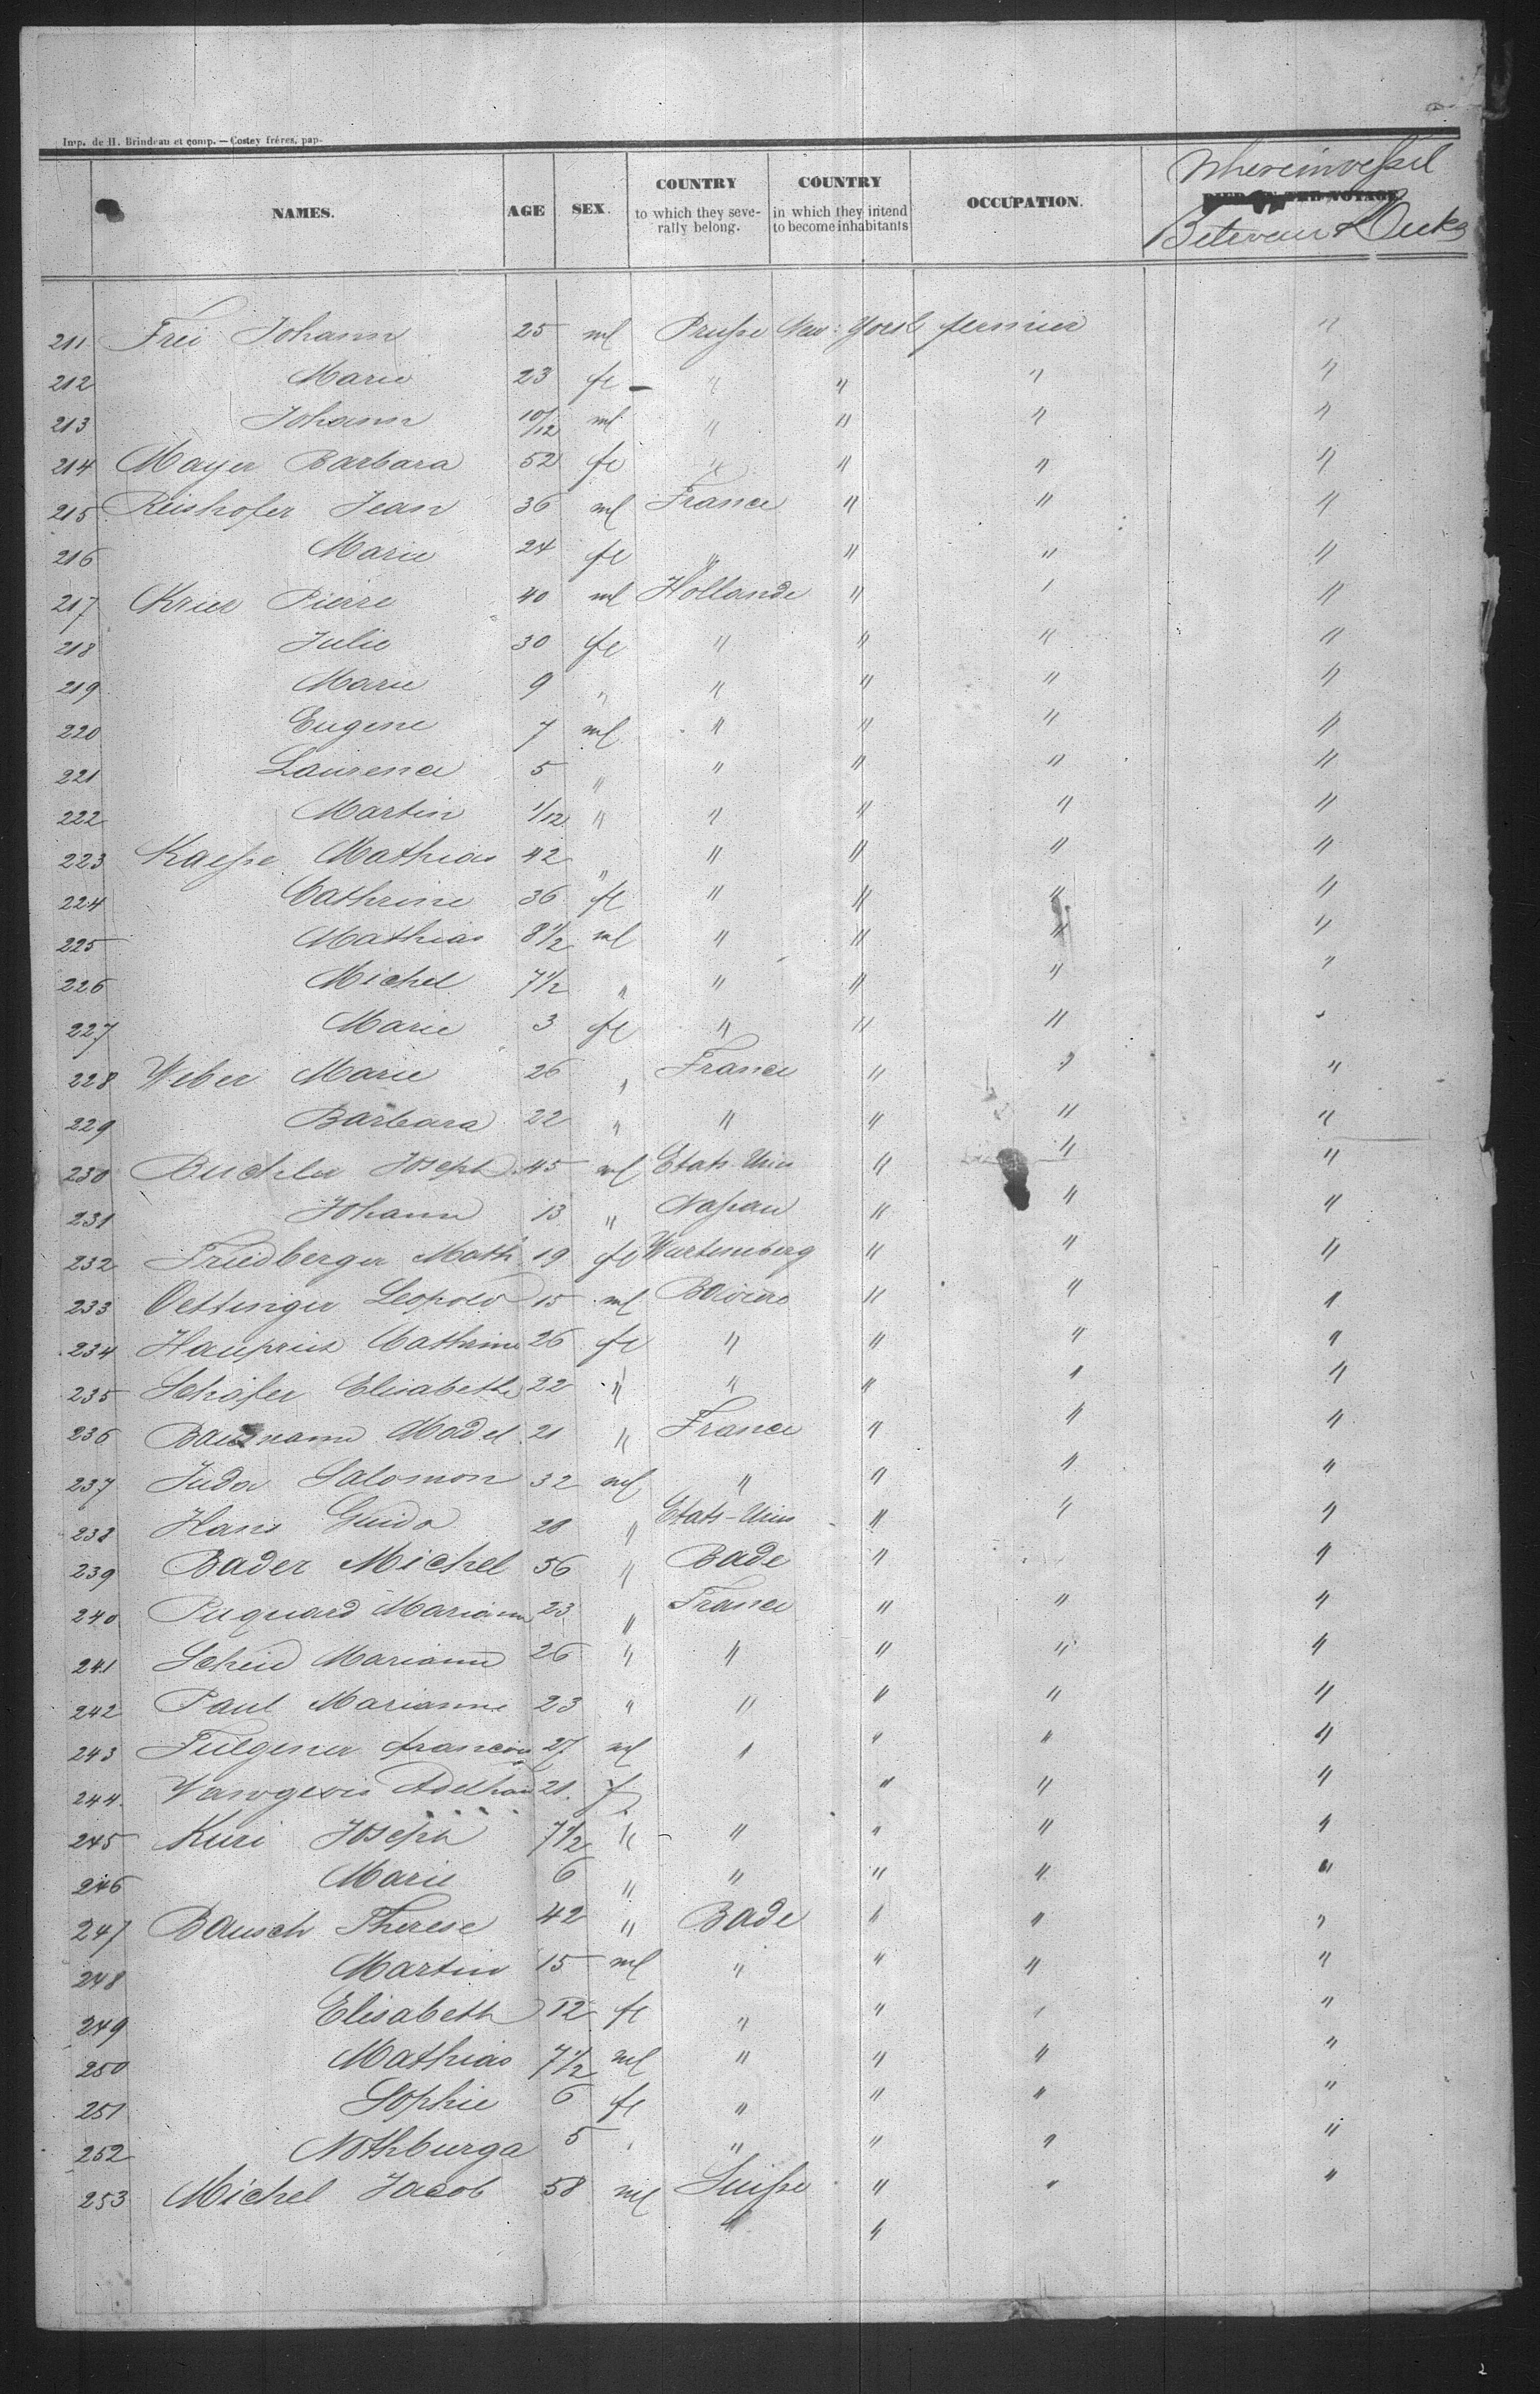 Imp. de H. Brindeau et comp. — Costey fréres, pap.
NAMES. AGE SEX. COUNTRY to which they seve-rally belong. COUNTRY in which they intend to become inhabitants OCCUPATION. DIED ON THE VOYAGE
Where in vessel
Between Decks
211 Frei Johann 25 ml Prusse New-York fermier "
212 Marie 23 fe " " " "
213 Johann 10/12 ml " " " "
214 Mayer Barbara 52 fe " " " "
215 Reishofer Jean 36 ml France " " "
216 Marie 24 fe " " " "
217 Krier Pierre 40 ml Hollande " " "
218 Julie 30 fe " " " "
219 Marie 9 " " " " "
220 Eugene 7 ml " " " "
221 Laurence 5 " " " " "
222 Martin 1/12 " " " " "
223 Kaesse Mathias 42 " " " " "
224 Cathrine 36 fe " " " "
225 Mathias 8 1/2 ml " " " "
226 Michel 7 1/2 " " " " "
227 Marie 3 fe " " " "
228 Weber Marie 26 " France " " "
229 Barbara 22 " " " " "
230 Buchler Joseph 45 ml Etats-Unis " " "
231 Johann 13 " Nassau " " "
232 Friedberger Math. 19 fe Wurtemberg " " "
233 Oettinger Leopold 15 ml Baviere " " "
234 Cathrine 26 fe " " " "
235 Schäfer Elisabeth 22 " " " " "
236 Madel 21 " France " " "
237 Juda Salomon 32 ml " " " "
238 Hans Guido 28 " Etats-Unis " " "
239 Bader Michel 56 " Bade " "
240 Mariann 23 " France " " "
241 Scheid Mariann 26 " " " " "
242 Paul Marianne 23 " " " " "
243 francois 27 ml " " " "
244 21 f " " "
245 Kuri Joseph 7 1/2 " " " " "
246 Marie 6 " " " " "
247 Bausch Therese 42 " Bade " " "
248 Martin 15 ml " " " "
249 Elisabeth 12 fe " " " "
250 Mathias 7 1/2 ml " " " "
251 Sophie 6 fe " " " "
252 Nothburga 5 " " " " "
253 Michel Jacob 58 ml Suisse " " "
" "
2